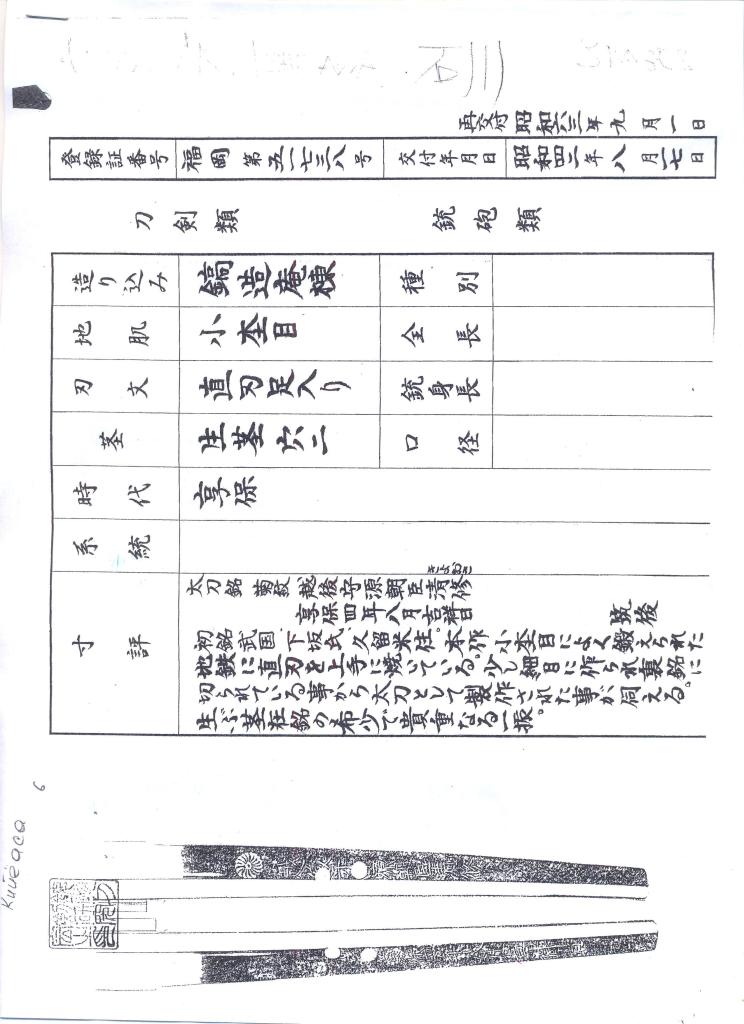 再交付 昭和六三年九月一日
登録証番号 福岡 第五一七三八号 交付年月日 昭和四二年八月一七日
刀剣類 銃砲類
造り込み 鎬造庵棟 種別
地肌 小杢目 全長
刃文 直刃足入り 銃身長
茎 生茎穴二 口径
時代 享保
系統
寸評
太刀銘 菊紋 越後守源朝臣清修
享保四年八月吉祥日
筑後
初銘武国。下坂氏、久留米住。本作小杢目によく鍛えられた
地鉄に直刃を上手に焼いている。少し細目に作られ裏銘に
切られている事から太刀として製作された事が伺える。
生ぶ茎在銘の希少で貴重なる一振。
6